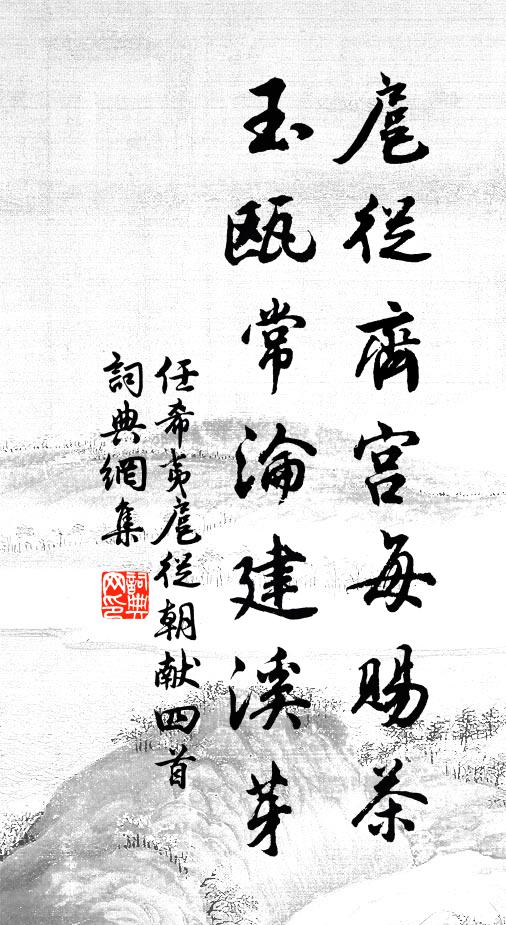 扈從齊宮每賜茶
玉甌常淪建溪芽
任希夷扈從朝献四首
詞典網集
詞典网印